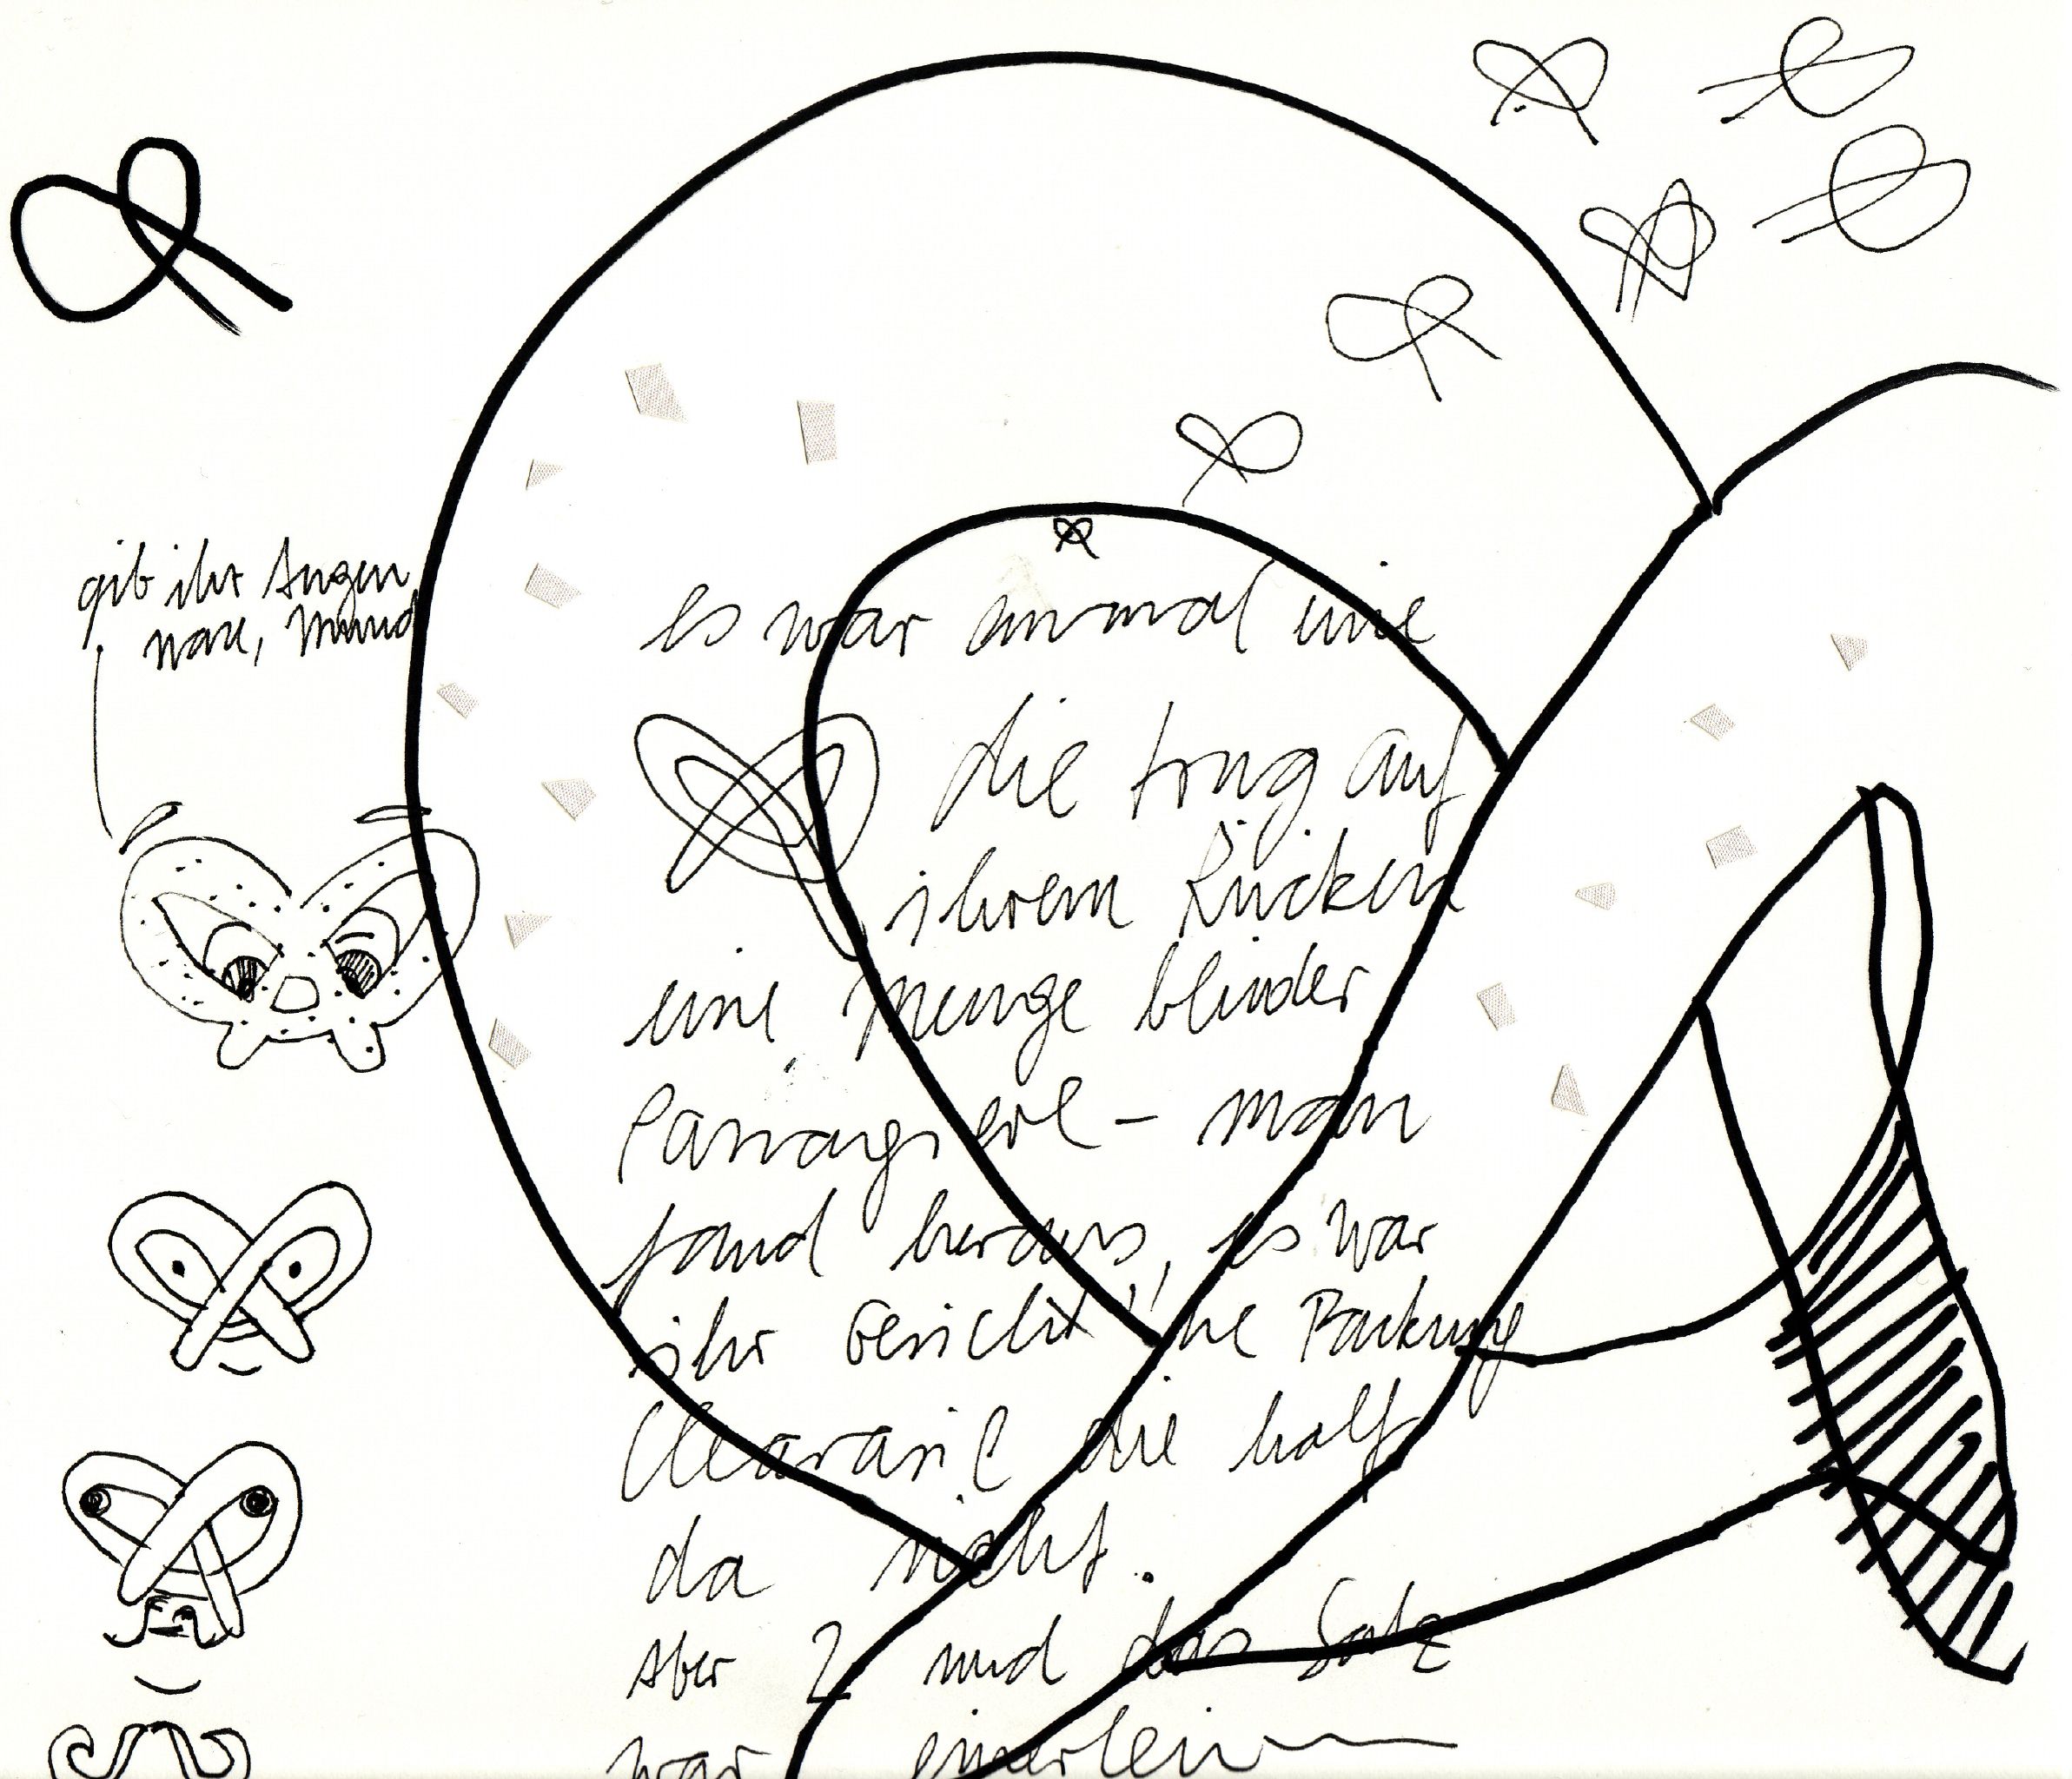 gib ihr Augen
Nase, Mund
es war einmal eine
die trug auf
ihrem Rücken
eine Menge blinder
Passagiere – man
fand heraus, es war
ihr Gesicht 'ne Packung
Clearasil die half
da nicht.
Aber 2 und das Salz
war einerlei